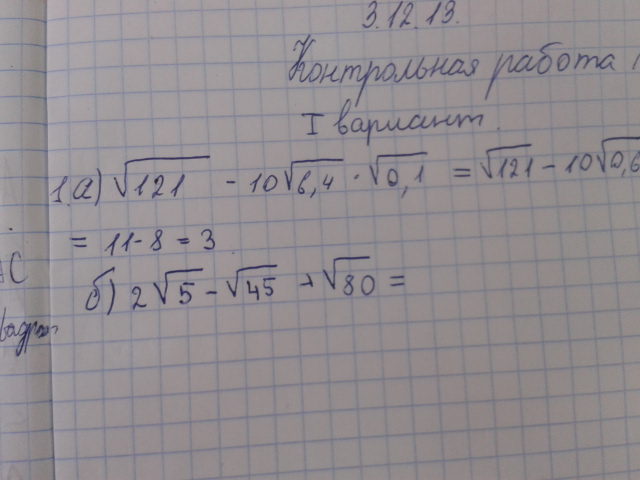 3.12.13.
Контрольная работа
I вариант.
1.а) √121 - 10√6,4 · √0,1 = √121 - 10√0,6
= 11 - 8 = 3
б) 2√5 - √45 + √80 =